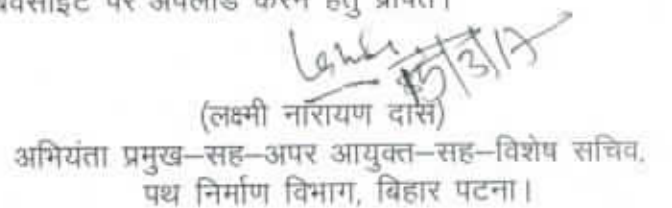 वेबसाइट पर अपलोड करने हेतु प्रेषित।
15/3/17
(लक्ष्मी नारायण दास)
अभियंता प्रमुख–सह–अपर आयुक्त–सह–विशेष सचिव,
पथ निर्माण विभाग, बिहार पटना।